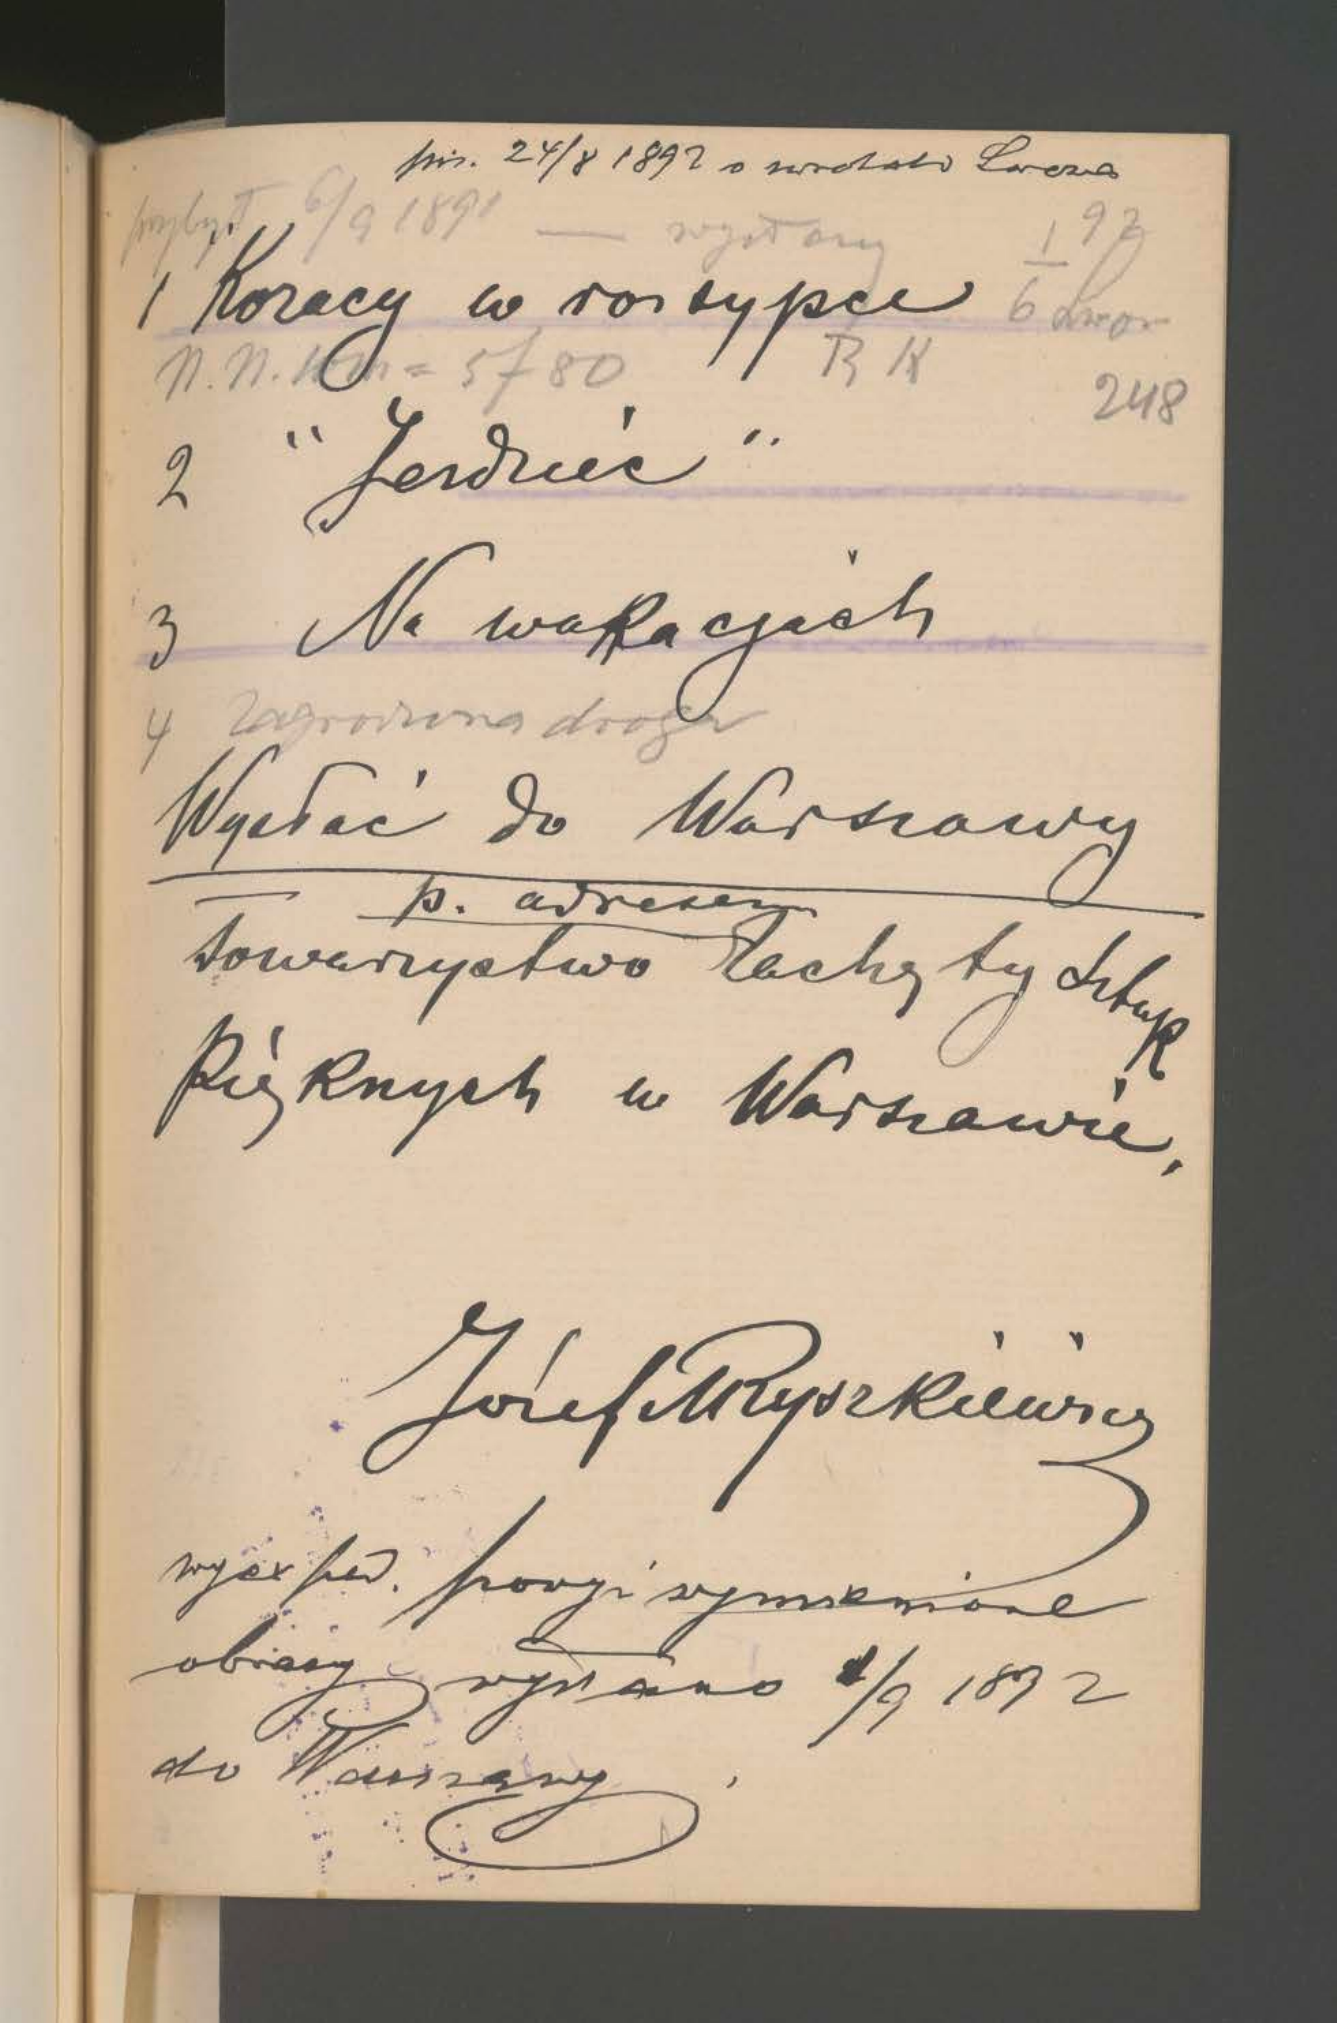 pis. 24/8 1892 o zwrot ze Lwowa
przybył 6/9 1891 — wysłany 1/6 92
1 Kozacy w rozsypce Lwow
N. N. = 5f 80 R K
248
2 "Jeździec"
3 Na wakacjach
4 Zagrodzona droga
Wysłać do Warszawy
p. adresem
Towarzystwo Zachęty Sztuk
Pięknych w Warszawie,
Józef M Ryszkiewicz
wyexped. powyż wymienione
obrazy wysłano 1/9 1892
do Warszawy.